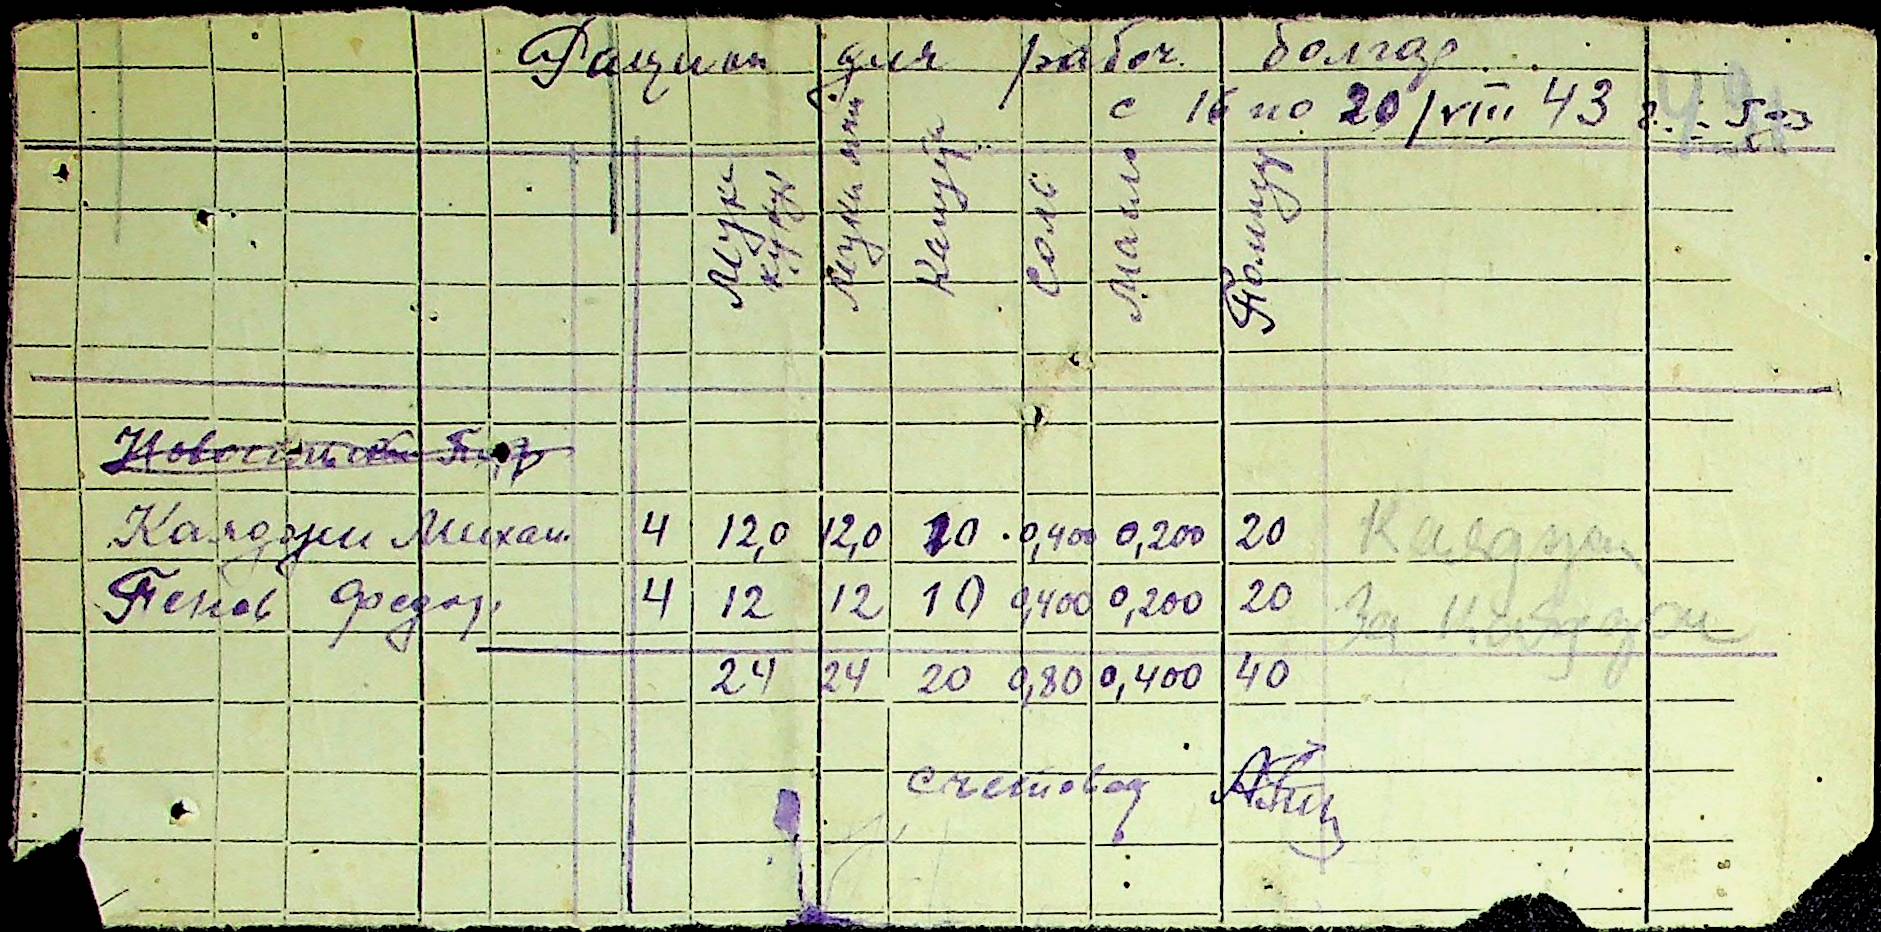 Рацион для рабоч. болгар
с 16 по 20/VIII 43 г. - 5 дн
Мука кукур
Мука ячм
Капус
Соль
Масло
Помидор
Новосельский Петр
Каяджи Михаил 4 12,0 12,0 10 0,400 0,200 20 Каяджи
Пенов Федор. 4 12 12 10 0,400 0,200 20 За Каяджи
24 24 20 0,80 0,400 40
счетовод